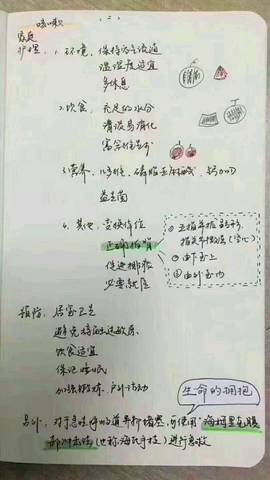 咳嗽
家庭
护理：1.环境，保持空气流通
温湿度适宜
多休息
2.饮食，充足的水分
清淡易消化
富含维生素
3.营养，
益生菌
4.其他，变换体位
正确拍背
促进排痰
必要就医
①五指并拢
②由下至上
③由外至内
预防：居室卫生
避免接触过敏原
饮食适宜
保证睡眠
加强锻炼，户外活动
生命的拥抱
另外，对于急性呼吸道异物堵塞，可使用“海姆里克腹
部冲击法（也称海氏手技）进行急救